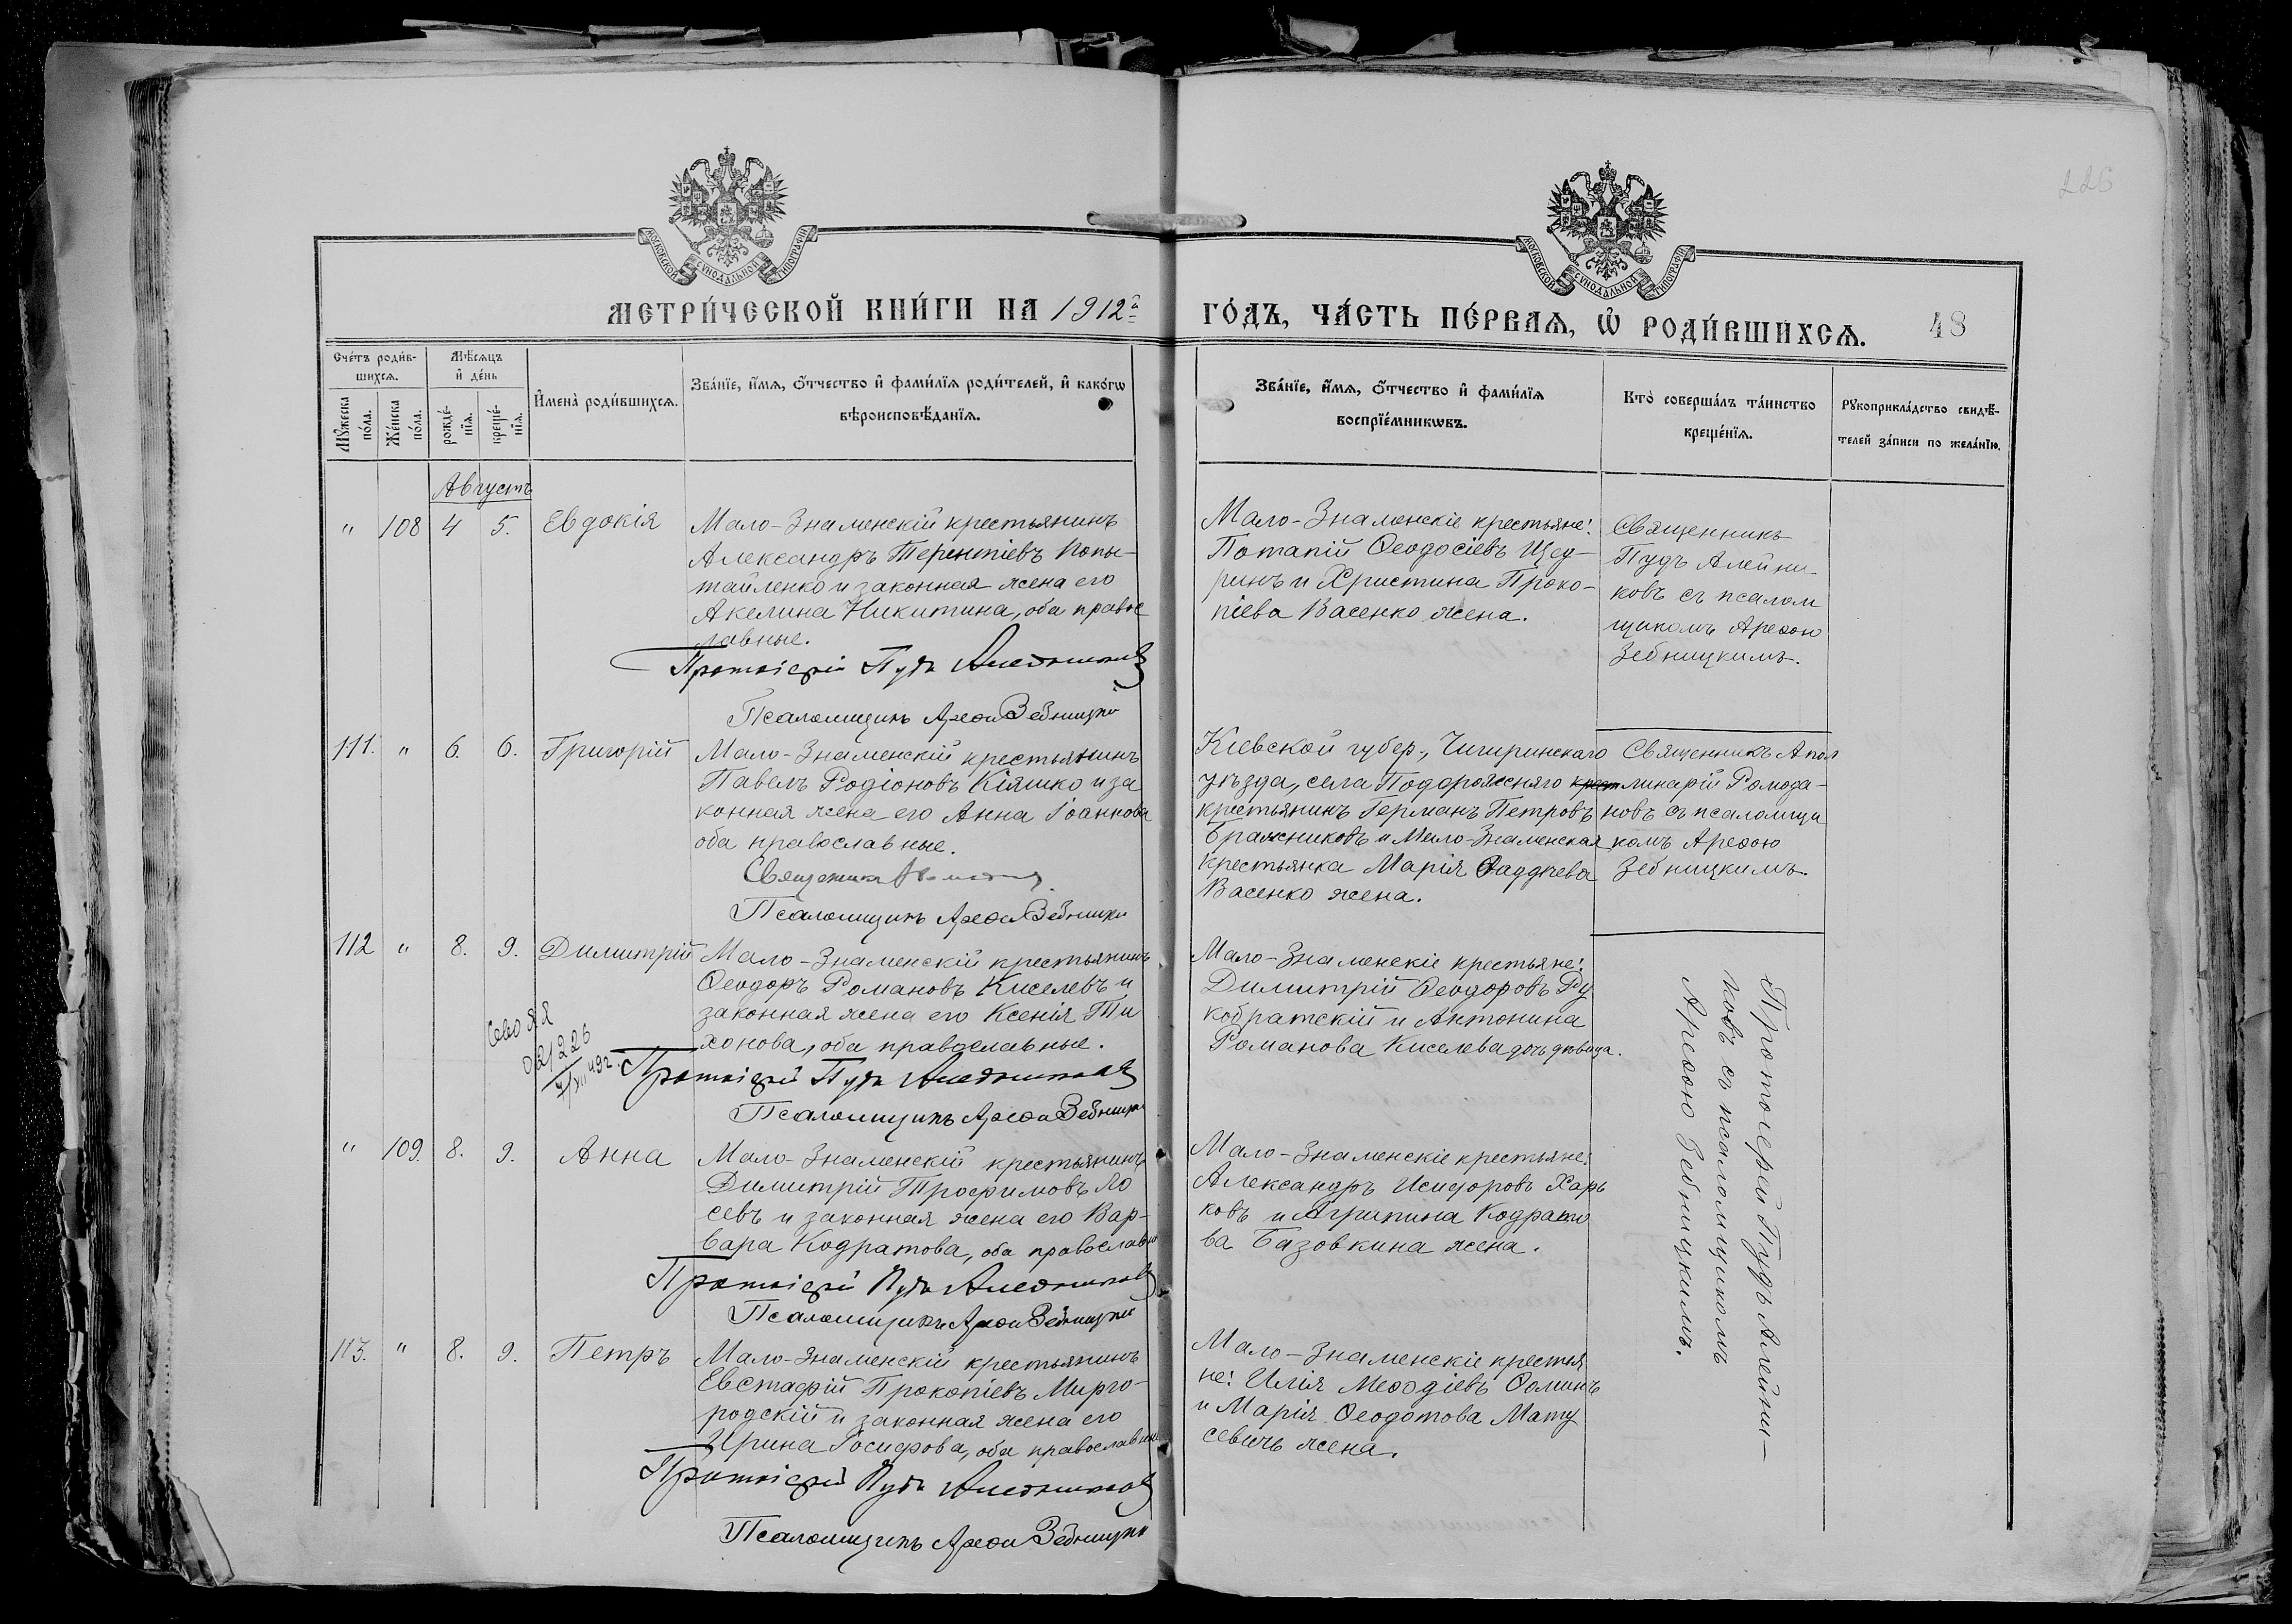 226
МОСКОВСКОЙ СѴНОДАЛЬНОЙ ТИПОГРАФІИ
МОСКОВСКОЙ СѴНОДАЛЬНОЙ ТИПОГРАФІИ
МЕТРИ́ЧЕСКОЙ КНИ́ГИ НА 1912й
ГО́ДЪ, ЧА́СТЬ ПЕ́РВАѦ, Ѡ҆ РОДИ́ВШИХСѦ. 48
Сче́тъ роди́в-
шихсѧ.
Мꙋ́жеска
по́ла.
Же́нска
по́ла.
Мѣ́сѧцъ
и҆ де́нь
рожде́-
нїѧ.
креще́-
нїѧ.
И҆мена̀ роди́вшихсѧ.
Зва́нїе, и҆́мѧ, ѻ҆́тчество и҆ фами́лїѧ роди́телей, и҆ како́гѡ
вѣроисповѣ́данїѧ.
Зва́нїе, и҆́мѧ, ѻ҆́тчество и҆ фами́лїѧ
воспрїе́мникѡвъ.
Кто̀ соверша́лъ та́инство
креще́нїѧ.
Рꙋкоприкла́дство свидѣ́-
телей за́писи по жела́нїю.
Августъ
" 108 4 5. Евдокія
Мало-Знаменскій крестьянинъ
Александръ Терентіевъ Копы-
тайленко и законная жена его
Акелина Никитина, оба право
славные.
Протоіерей Пудъ Алейниковъ
Псаломщикъ Арефа Зебницкій
Мало-Знаменскіе крестьяне:
Потапій Ѳеодосіевъ Щед-
ринъ и Христина Проко-
піева Васенко жена.
Священникъ
Пудъ Алейни-
ковъ съ псалом
щикомъ Арефою
Зебницкимъ.
111. " 6. 6. Григорій
Мало-Знаменскій крестьянинъ
Павелъ Родіоновъ Кіяшко и за
конная жена его Анна Іоаннова
оба православные.
Священникъ
Псаломщикъ Арефа Зебницкій
Кіевской губер., Чигиринскаго
уѣзда, села Подорожняго крест
крестьянинъ Германъ Петровъ
Бражниковъ и Мало-Знаменская
крестьянка Марія Ѳаддѣева
Васенко жена.
Священникъ Апол
линарій Ромода-
новъ съ псаломщи
комъ Арефою
Зебницкимъ.
112 " 8. 9. Димитрій
Мало-Знаменскій крестьянинъ
Ѳеодоръ Романовъ Киселевъ и
законная жена его Ксенія Ти
хонова, оба православные.
Протоіерей Пудъ Алейниковъ
Псаломщикъ Арефа Зебницкій
Мало-Знаменскіе крестьяне:
Димитрій Ѳеодоровъ Ру
кобратскій и Антонина
Романова Киселева дочь дѣвица.
Протоіерей Пудъ Алейни-
ковъ съ псаломщикомъ
Арефою Зебницкимъ.
" 109. 8. 9. Анна
Мало-Знаменскій крестьянинъ
Димитрій Трофимовъ Ло
севъ и законная жена его Вар-
вара Кодратова, оба православн
Протоіерей Пудъ Алейниковъ
Псаломщикъ Арефа Зебницкій
Мало-Знаменскіе крестьяне:
Александръ Исидоровъ Харь
ковъ и Агрипина Кодрато
ва Базовкина жена.
113. " 8. 9. Петръ
Мало-Знаменскій крестьянинъ
Евстафій Прокопіевъ Мирго-
родскій и законная жена его
Ирина Іосифова, оба православны
Протоіерей Пудъ Алейниковъ
Псаломщикъ Арефа Зебницкій
Мало-Знаменскіе крестья
не: Илія Меѳодіевъ Ѳоминъ
и Марія Ѳеодотова Мату
севичъ жена.